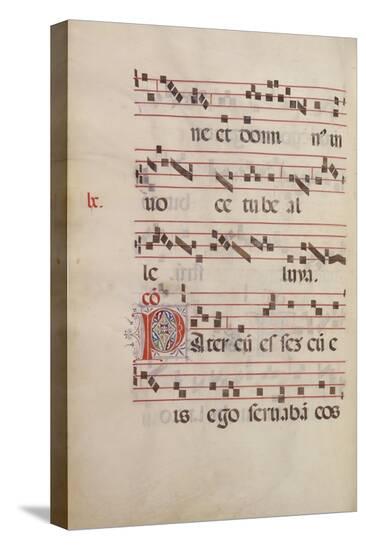 ne et domn nꝰ in
uo ce tube al
lx.
le luya.
cō
Pater cū essēs cū e
is ego seruabā eos